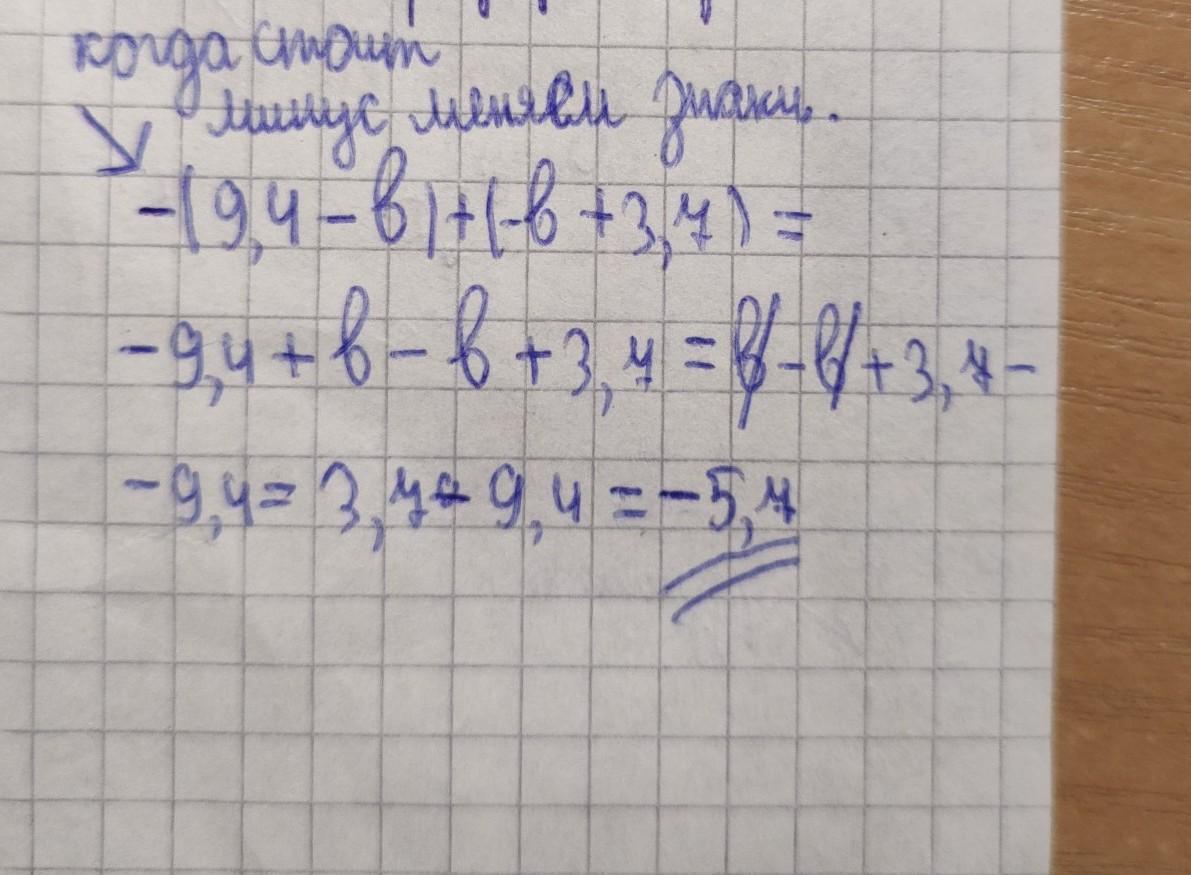 когда стоит
минус меняем знаки.
-(9,4-в)+(-в+3,7)=
-9,4+в-в+3,7=в-в+3,7-
-9,4=3,7-9,4=-5,7